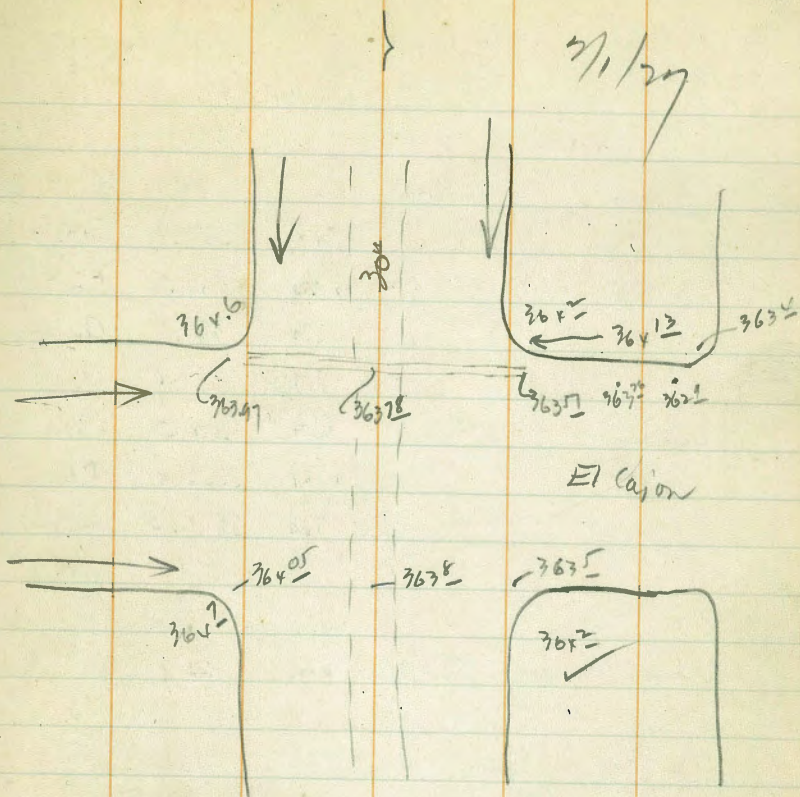 30th
364.6
364²
364¹³
363⁴
363⁹⁷
363⁷⁸
363⁵⁷
El Cajon
364⁰⁵
363⁸
363⁵
364⁷
364²